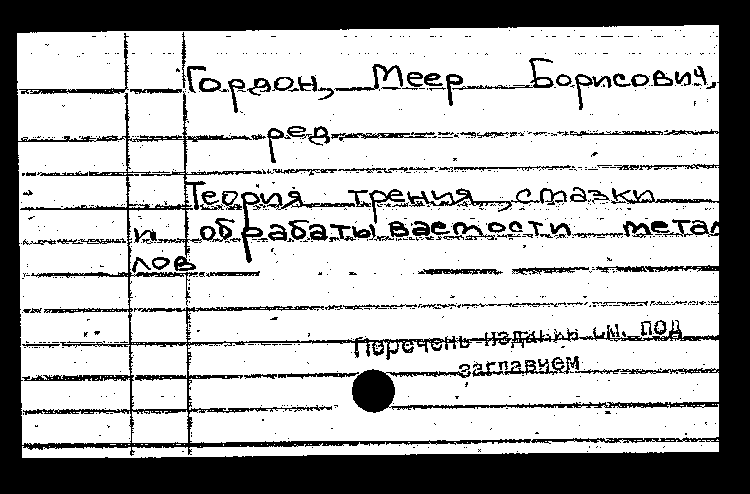 Гордон, Меер Борисович,
ред.
Теория трения, смазки
и обрабатываемости метал
лов
Перечень изданий см. под
заглавием